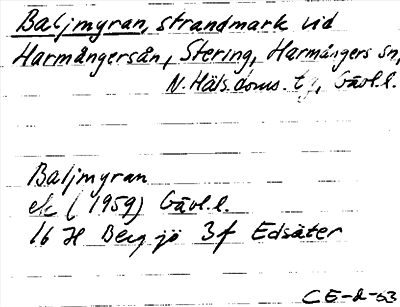 Baljmyran, strandmark vid
Harmångersån, Stering, Harmångers sn,
N. Häls. doms. tg, Gävl.l.
Baljmyran
ek (1959) Gävl.l.
16 H Bergsjö 3f Edsäter
CE-d-63